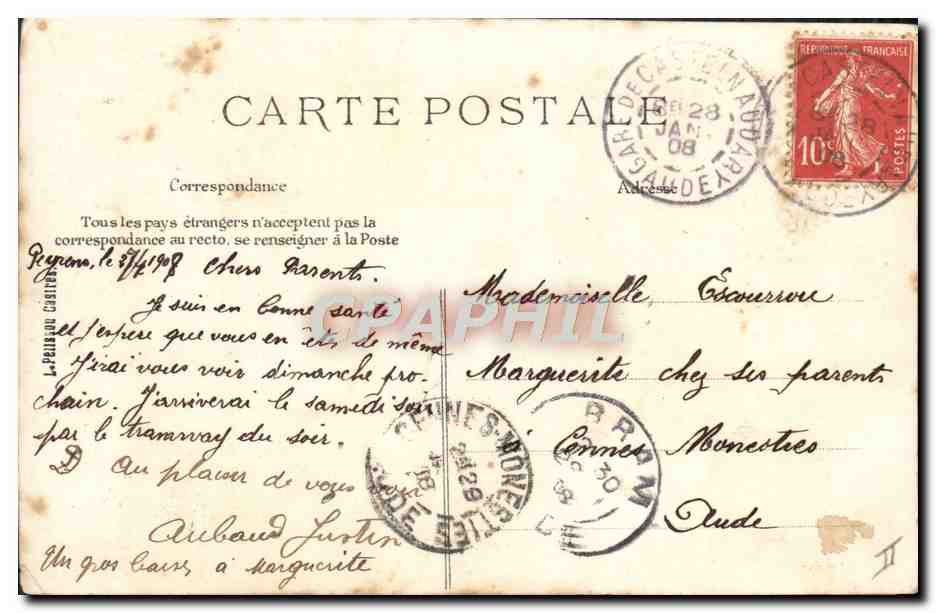 CARTE POSTALE
GARE DE CASTELNAUDARY AUDE
28
JANV
08
REPUBLIQUE FRANÇAISE
10c
POSTES
Correspondance
Adresse
Tous les pays étrangers n'acceptent pas la
correspondance au recto, se renseigner à la Poste
L. Pélissou Castres
Peyrens, le 1908 Chers Parents.
Je suis en bonne santé
et j'espère que vous en êts de même
J'irai vous voir dimanche pro-
chain. J'arriverai le samedi soir
par le tramway du soir.
Au plaisir de vous voir
Aribaud Justin
Un gros baiser à Marguerite
Mademoiselle Escourrou
Marguerite chez ses parents
Cennes Monestiés
Aude
CENNES-MONESTIES
29
08
AUDE
BRAM
30
08
CPAPHIL
II